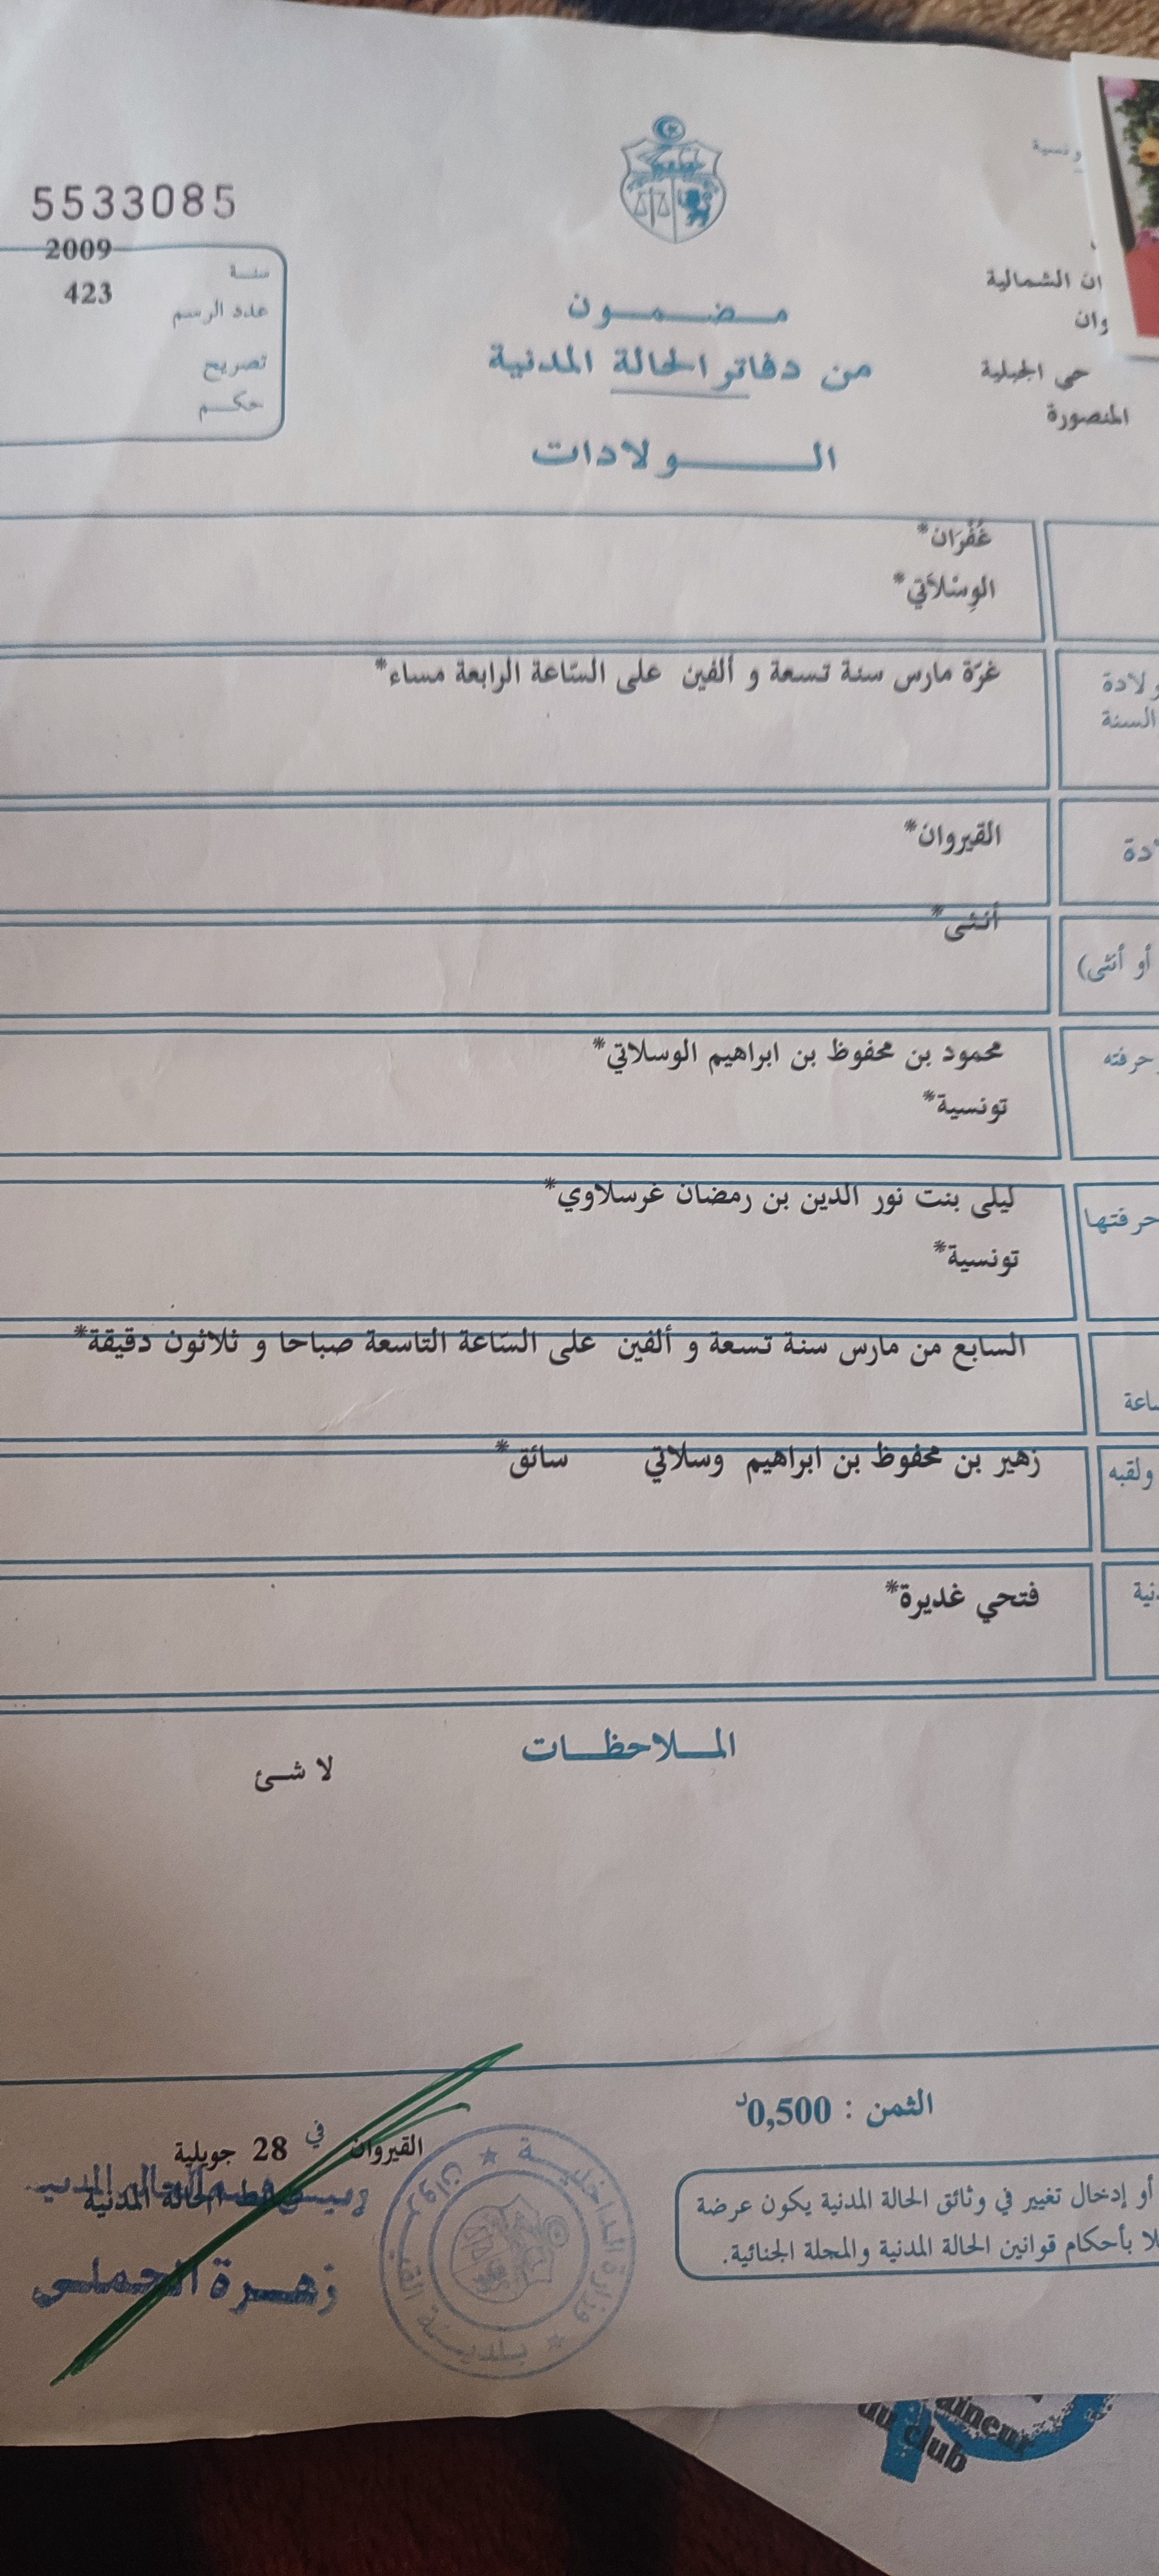 ونسية
5533085
2009
سنة
423
عدد الرسم
تصريح
حكم
ان الشمالية
وان
حي الجبلية
المنصورة
مضمون
من دفاتر الحالة المدنية
الولادات
غُفْرَان*
الوِسْلاَتي*
ولادة
السنة
غرّة مارس سنة تسعة و ألفين على السّاعة الرابعة مساء*
القيروان*
أو أنثى)
أنثى*
حرفته
محمود بن محفوظ بن ابراهيم الوسلاتي*
تونسية*
حرفتها
ليلى بنت نور الدين بن رمضان غرسلاوي*
تونسية*
السابع من مارس سنة تسعة و ألفين على السّاعة التاسعة صباحا و ثلاثون دقيقة*
ولقبه
زهير بن محفوظ بن ابراهيم وسلاتي سائق*
فتحي غديرة*
الملاحظات
لا شئ
الثمن : 0,500د
القيروان في 28 جويلية
الحالة المدنية
زهرة
وزارة الداخلية
بلدية القيروان
أو إدخال تغيير في وثائق الحالة المدنية يكون عرضة
بأحكام قوانين الحالة المدنية والمجلة الجنائية.
du club